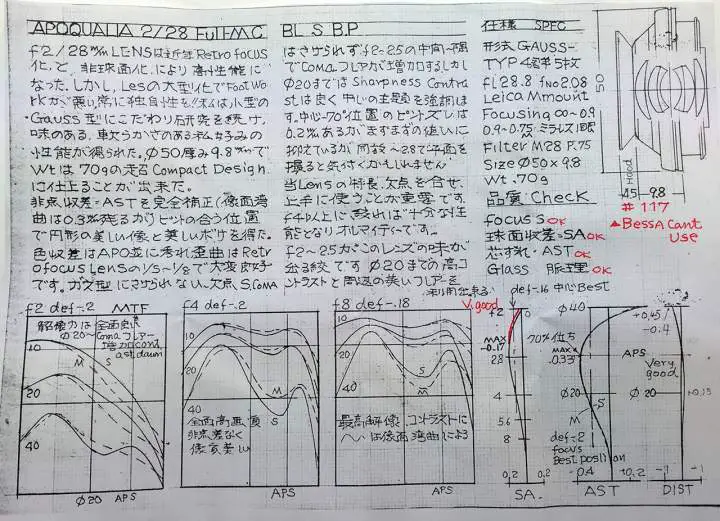 APOQUALIA 2/28 Full-M.C
f2/28m/m LENSは近年Retro focus
化と、非球面化により高性能に
なった. しかし、Lesの大型化でFoot Wo
rkが悪い常に独自性を 私は小型の
Gauss型にこだわり研究を続け.
味のある、軟らかさのある私好みの
性能が得られた。Ø50厚み9.8m/mで
Wtは70gの超Compact Design
に仕上ることが出来た。
非点収差・ASTを完全補正(像面湾
曲は0.3%残るがピットの合う位置
で円形の美しい像と美しいボケを得た。
色収差はAPO並に秀れ歪曲はRetr
ofocus Lensの1/5~1/8で大変良好
です. ガウス型にさけられない欠点S.Coma
BL. S. B.P
はさけられずf2~2.5の中間~隅
でComaフレアが増加するしかし
Ø20まではSharpness Contra
stは良く中心の主題を強調しま
す.中心~70%位置のピントズレは
0.2%あるがまずまずの値いに
抑えているが開放~2.8で平面を
撮ると気付くかもしれません
当Lensの特長、欠点を合せ、
上手に使うことが重要です.
f4以上に絞れば十分な性
能となりオルマイティーです.
f2~2.5がこのレンズの味が
出る絞です Ø20までの高コ
ントラストと周辺の淡いフレアーを
利用出来る
仕様 SPEC
形式 GAUSS-
TYP 4群5枚
fL28.8 fno2.08
Leica Mmount
Focusing ∞~0.9
0.9~0.75
Filter M28 P.75
Size Ø50×9.8
Wt. 70g
品質 Check
focus S OK
球面収差・SA OK
芯ずれ・AST OK
Glass 脈理 OK
50
Hood
4.5 9.8
# 117
▲BessA Cant
Use
f2 def-.2 MTF
解像力は全面良
Ø20~Comaフレアー
増加cont
ast dawn
10
M S
20
40
Ø20 APS
f4 def-.2
10
20
40
M
S
全面高画質
非点差なく
像質美しい
APS
f8 def-.18
10
20
40
S
M
最高解像、コントラストに
へ〜は像面湾曲による
APS
V.good
def-.16 中心Best
f2
MAX
-0.17
2.8
4
5.6
8
0.2 0.2
SA.
70%位5
Ø40
MAX
-0.33
Ø20
M
S
+0.45/
-0.4
APS
def-.2
focus
Best position
-0.4 +0.2
AST
Very
good
Ø20
0.15
-1 -1
DIST